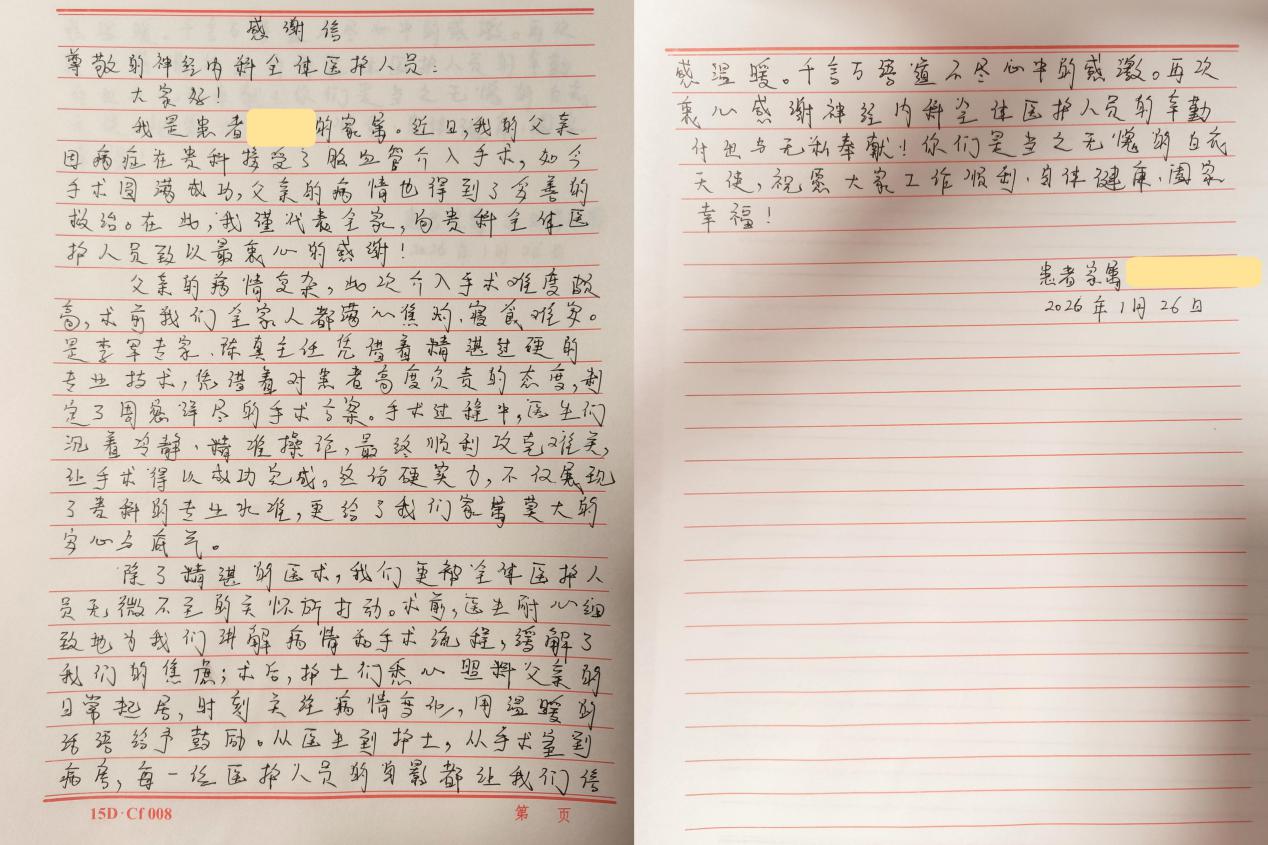 感谢信
尊敬的神经内科全体医护人员：
大家好！
我是患者 的家属。近日，我的父亲
因病症在贵科接受了脑血管介入手术，如今
手术圆满成功，父亲的病情也得到了妥善的
救治。在此，我谨代表全家，向贵科全体医
护人员致以最衷心的感谢！
父亲的病情复杂，此次介入手术难度颇
高，术前我们全家人都满心焦灼、寝食难安。
是李军专家、陈真主任凭借着精湛过硬的
专业技术，凭借着对患者高度负责的态度，制
定了周密详尽的手术方案。手术过程中，医生们
沉着冷静、精准操作，最终顺利攻克难关，
让手术得以成功完成。这份硬实力，不仅展现
了贵科的专业水准，更给了我们家属莫大的
安心与底气。
除了精湛的医术，我们更被全体医护人
员无微不至的关怀所打动。术前，医生耐心细
致地为我们讲解病情和手术流程，缓解了
我们的焦虑；术后，护士们悉心照料父亲的
日常起居，时刻关注病情变化，用温暖的
话语给予鼓励。从医生到护士，从手术室到
病房，每一位医护人员的身影都让我们倍
15D·Cf 008 第 页
感温暖。千言万语道不尽心中的感激。再次
衷心感谢神经内科全体医护人员的辛勤
付出与无私奉献！你们是当之无愧的白衣
天使，祝愿大家工作顺利、身体健康、阖家
幸福！
患者家属
2026年1月26日